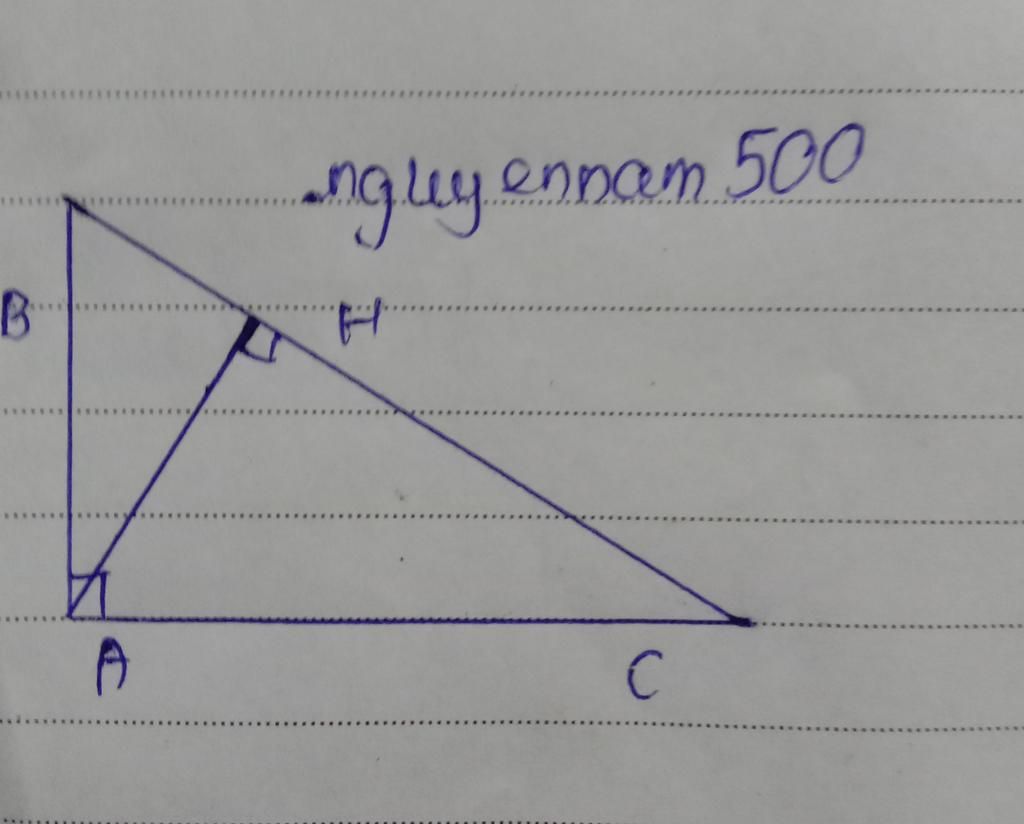 .nguyennam 500
B
H
A
C